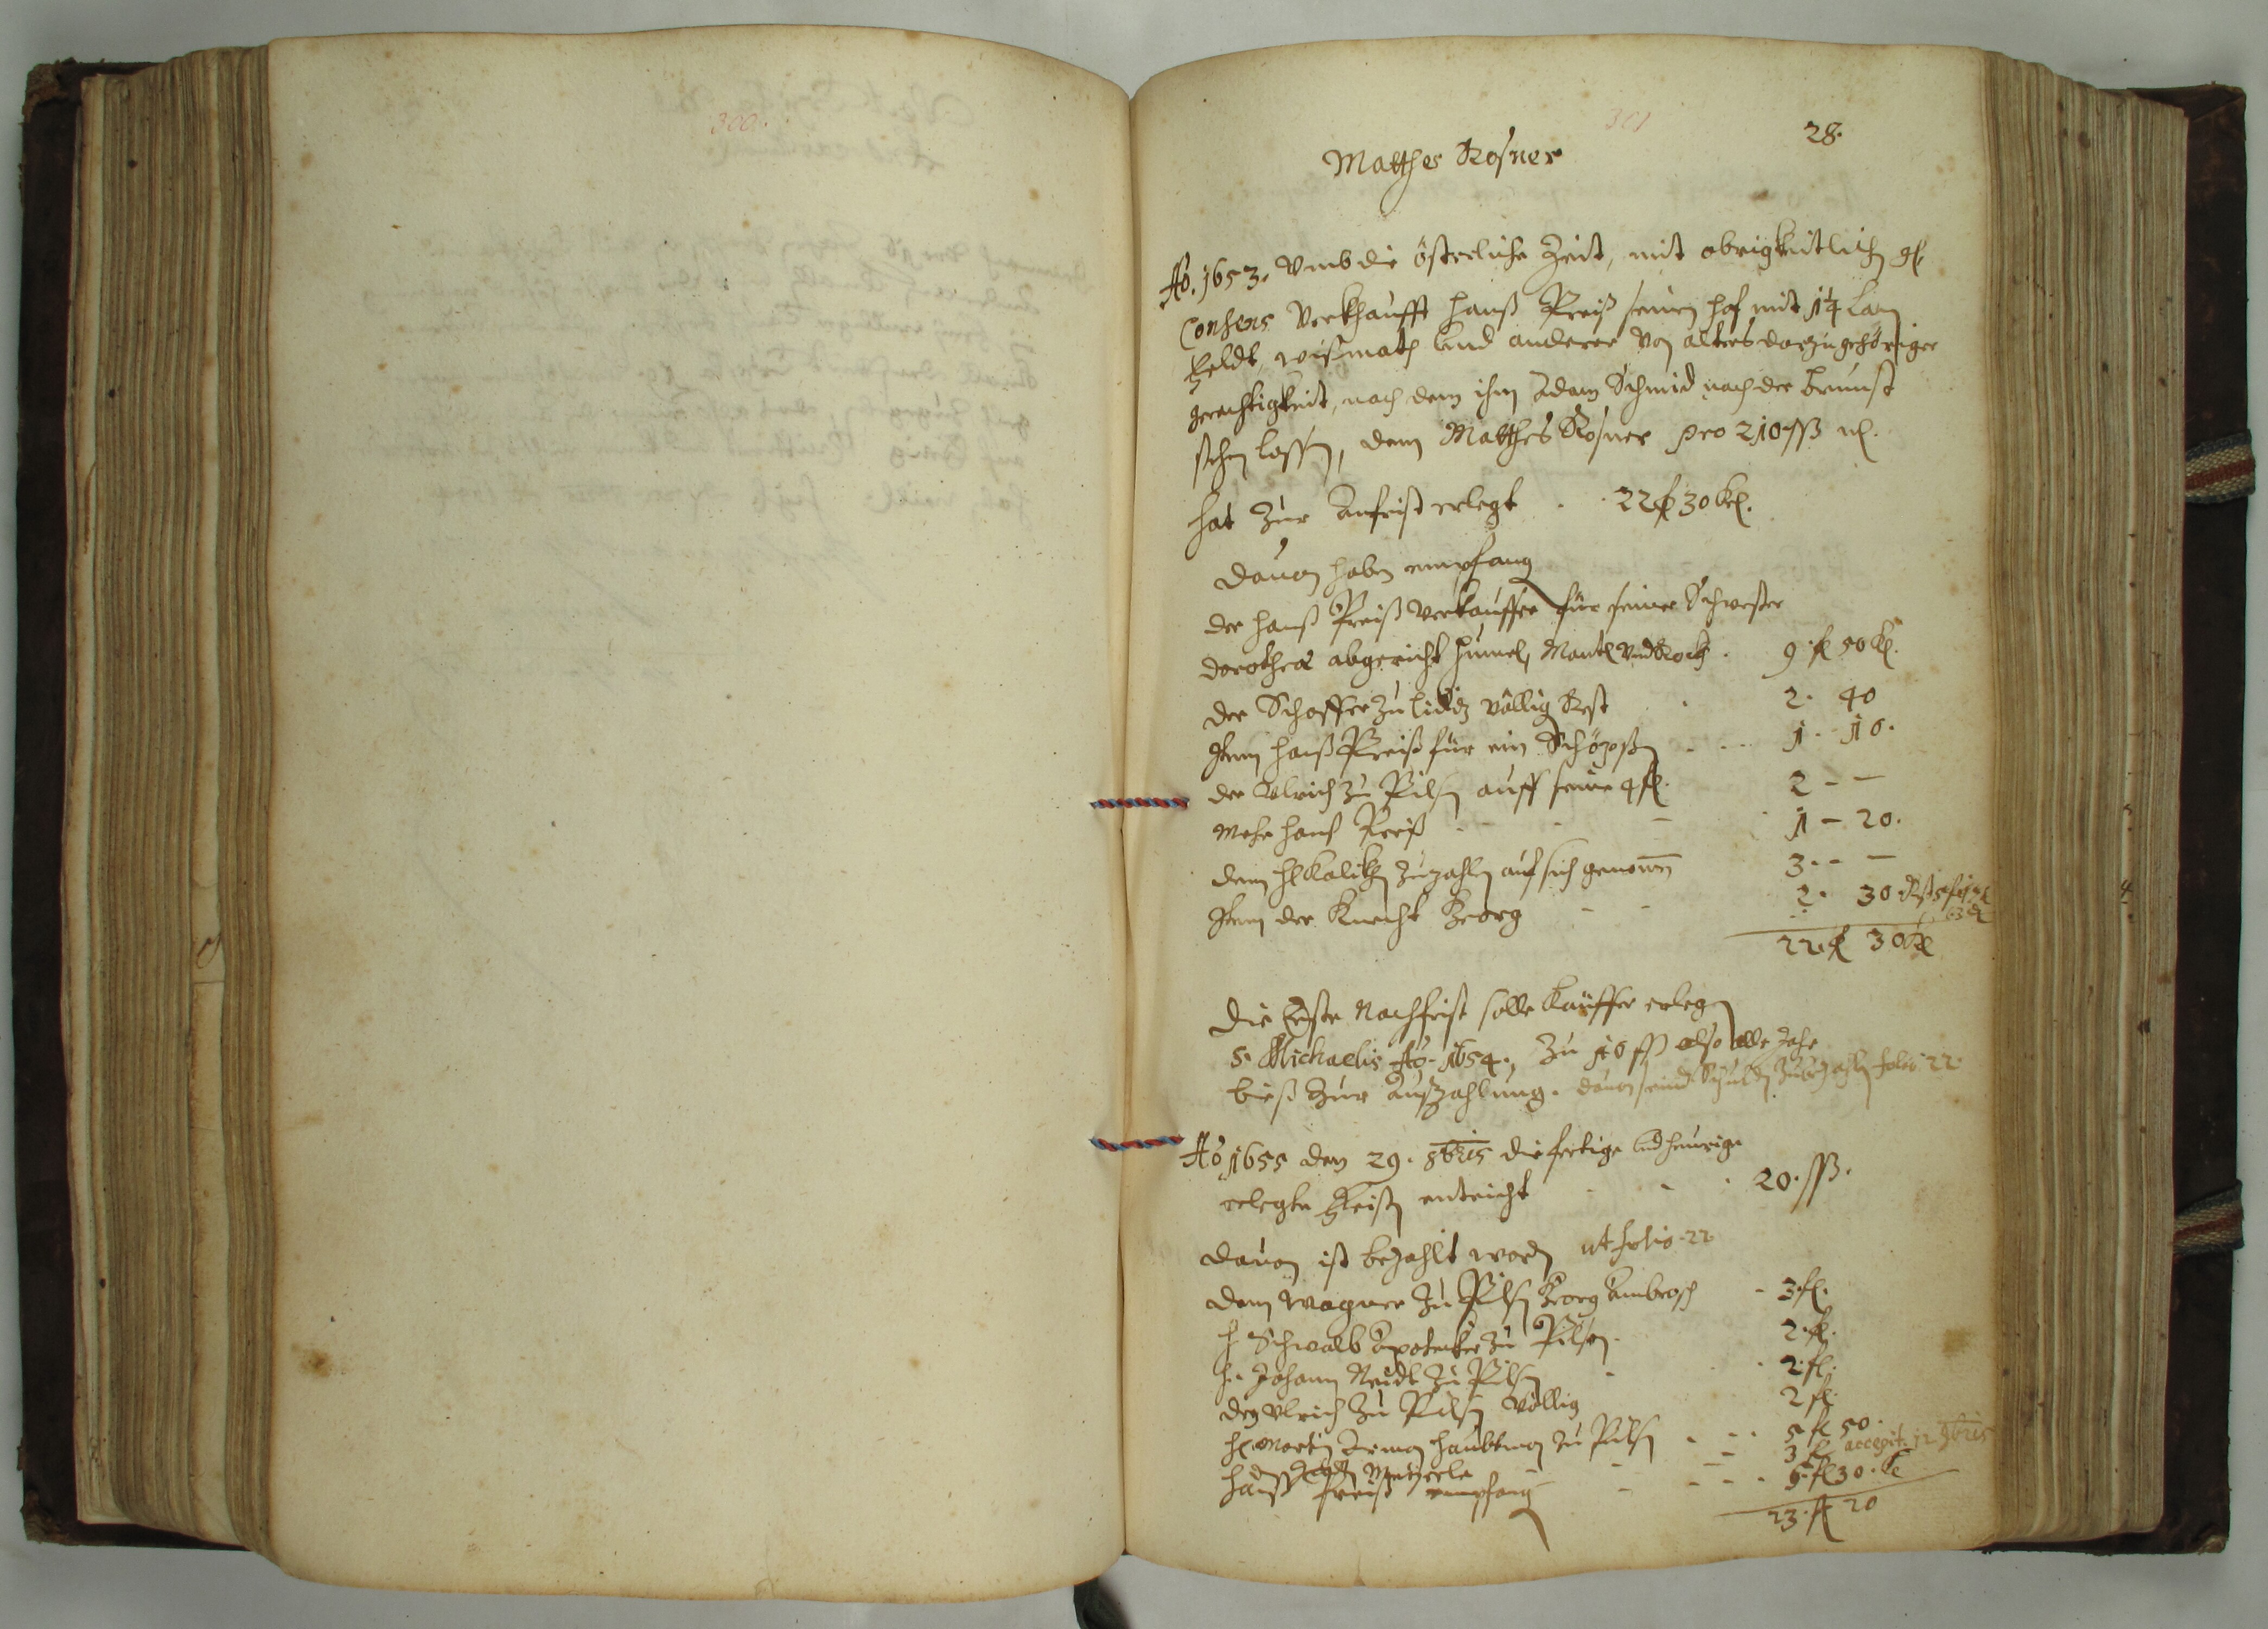 300.
301
28.
Matthes Rosner
Aõ. 1653. Vmb die österliche Zeit, mit obrigkeitlichen
Consens Verkhaufft Hanß Preiß seinen hof mit 1¼ Lan
Feldt, wißmath und anderer Von alters darzugehöriger
gerechtigkeit, nach dem ihm Adam Schmid nach der brunst
stehen lassen, dem Matthes Rosner pro 210 ßß
hat Zur Anfrist erlegt . . 22 fl 30 kr.
dauon haben empfang
der Hanß Preiß Verkauffer für seiner Schwester
dorothea abgericht Mantl Vnd Rock . 9 fl 50 kr.
der Schaffer zu völlig Rest . 2. 40
Item Hanß Preiß für ein Schöpsen . . . 1. 10.
der Vlrich zu Pilsen auff seine 4 fl. 2 - -
Mehr Hanß Preiß - - - 1 - 20.
dem zuzahlen auf sich genomen 3 - - -
Item der Knecht Georg - - 2. 30.
22 fl 30 kr
Die Erste Nachfrist solle Kauffer erlegen
S. Michaelis Aõ. 1654., zu 10 ßß also alle Jahr
bieß Zur Außzahlung. dauon seind Schulden Zubezahlen folio 22.
Aõ 1655 den 29. 8bris die fertige und heurige
erlegte entricht - - . 20. ßß.
dauon ist bezahlt worden ut folio 22
dem Wagner Zu Pilsen Georg Ambrosch - 3 fl.
H. Schwalb Apotecker zu Pilsen. 2 fl.
H. Johann Neidl Zu Pilsen . . 2 fl.
den Vlrich Zu Pilsen Völlig 2 fl.
H. Martin Haubtman zu Pilsen . . . 5 fl 50.
- 3 fl accepit. 12 9bris
Hanß Preiß empfang - - - . 5 fl 30. kr
23. fl 20